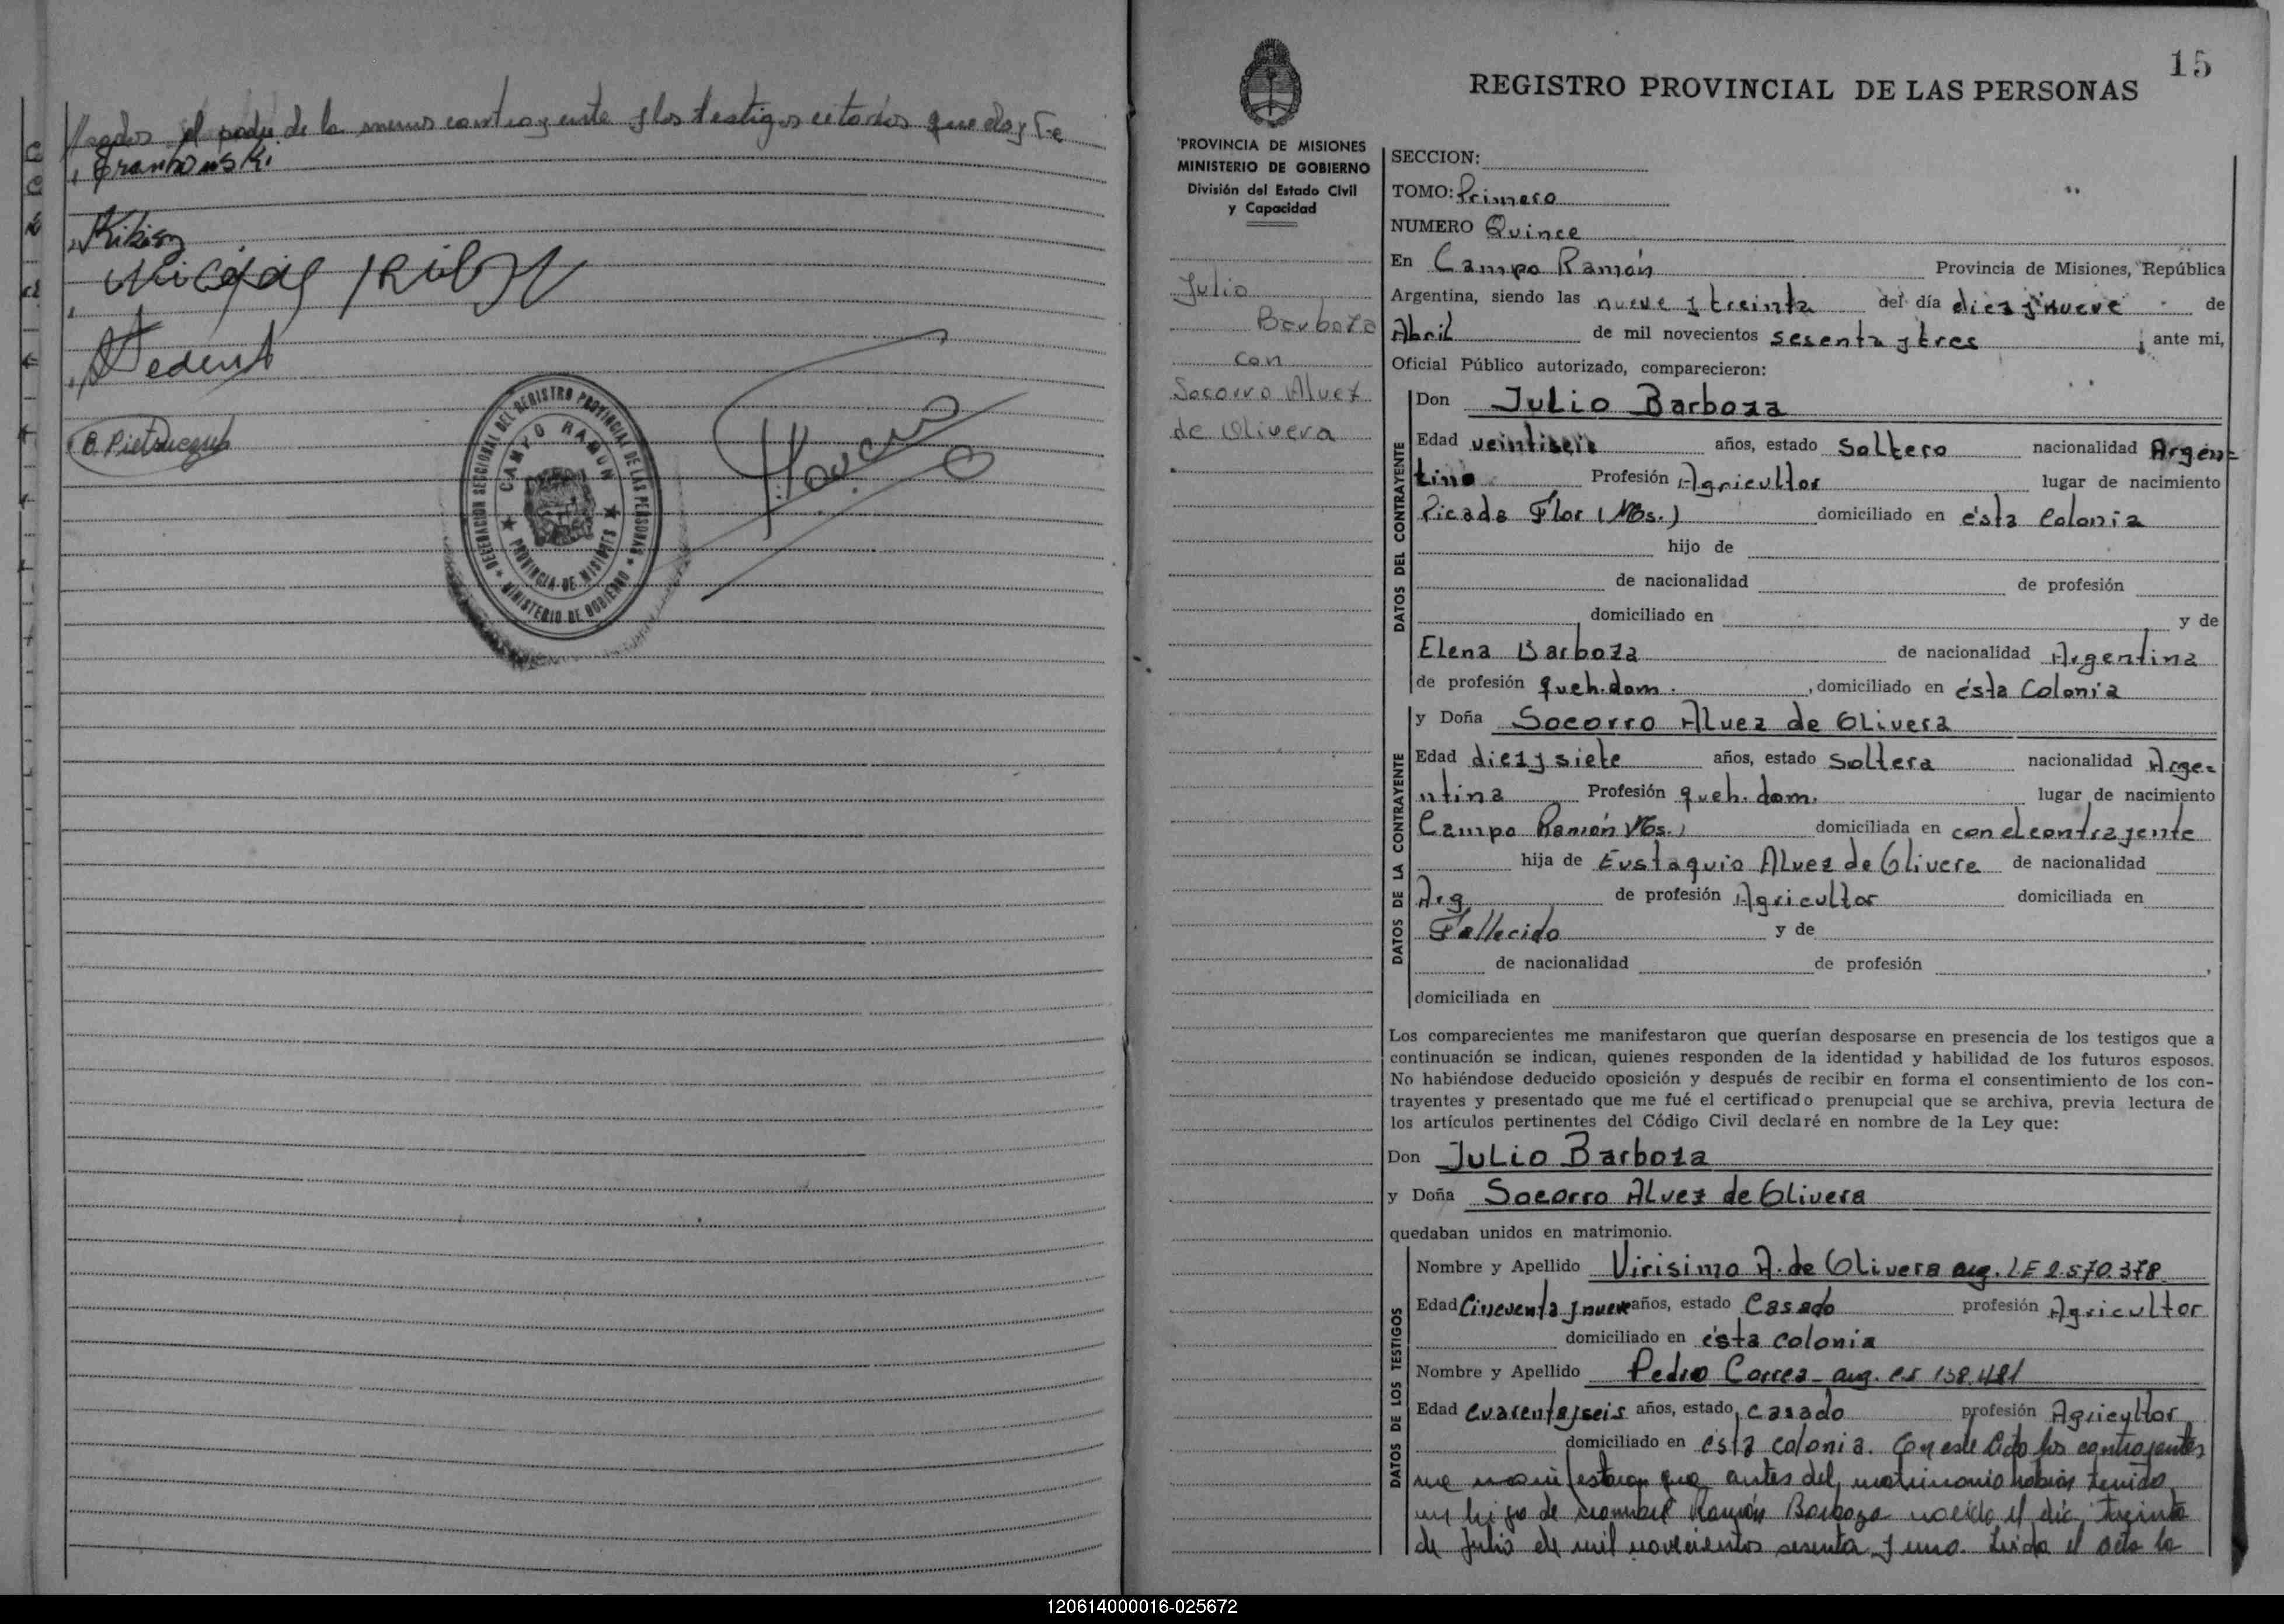 el padre de la menor contrayente y los testigos citados que doy Fe
Nicolás
REGISTRO PROVINCIAL DE LAS PERSONAS
DELEGACION SECCIONAL DEL REGISTRO PROVINCIAL DE LAS PERSONAS
CAMPO RAMON
PROVINCIA DE MISIONES
MINISTERIO DE GOBIERNO
15
'PROVINCIA DE MISIONES
MINISTERIO DE GOBIERNO
División del Estado Civil
y Capacidad
Julio
Barboza
con
Socorro Alvez
de Olivera
SECCION:
TOMO: Primero
NUMERO Quince
En Campo Ramón Provincia de Misiones, República
Argentina, siendo las nueve y treinta del día diez y nueve de
Abril de mil novecientos sesenta y tres ; ante mi,
Oficial Público autorizado, comparecieron:
DATOS DEL CONTRAYENTE
Don Julio Barboza
Edad veintiseis años, estado Soltero nacionalidad Argen=
tino Profesión Agricultor lugar de nacimiento
Picada Flor (Mos.) domiciliado en ésta Colonia
hijo de
de nacionalidad de profesión
domiciliado en y de
Elena Barboza de nacionalidad Argentina
de profesión queh.dom. , domiciliado en ésta Colonia
DATOS DE LA CONTRAYENTE
y Doña Socorro Alvez de Olivera
Edad diez y siete años, estado Soltera nacionalidad Arge=
ntina Profesión queh. dom. lugar de nacimiento
Campo Ramón (Mos.) domiciliada en con el contrayente
hija de Eustaquio Alvez de Olivera de nacionalidad
Arg de profesión Agricultor domiciliada en
Fallecido y de
de nacionalidad de profesión ,
domiciliada en
Los comparecientes me manifestaron que querían desposarse en presencia de los testigos que a
continuación se indican, quienes responden de la identidad y habilidad de los futuros esposos.
No habiéndose deducido oposición y después de recibir en forma el consentimiento de los con-
trayentes y presentado que me fué el certificado prenupcial que se archiva, previa lectura de
los artículos pertinentes del Código Civil declaré en nombre de la Ley que:
Don Julio Barboza
y Doña Socorro Alvez de Olivera
quedaban unidos en matrimonio.
DATOS DE LOS TESTIGOS
Nombre y Apellido Virisimo A. de Olivera arg. LE 2.570.378
Edad Cincuenta y nueve años, estado Casado profesión Agricultor
domiciliado en ésta colonia
Nombre y Apellido Pedro Correa - arg. CI 138.481
Edad Cuarenta y seis años, estado casado profesión Agricultor
domiciliado en ésta colonia. En este acto los contrayentes
me manifestaron que antes del matrimonio habían tenido
un hijo de nombre Ramón Barboza nacido el día treinta
de Julio de mil novecientos sesenta y uno. Leida el acta la
120614000016-025672